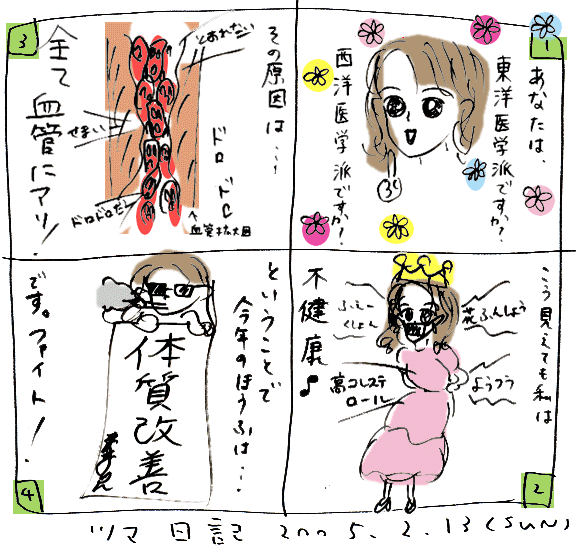 1
あなたは、
東洋医学派ですか?
西洋医学派ですか?
2
こう見えても私は
花ふんしょう
ようつう
ふぇー
くしょん
高コレステ
ロール
不健康♪
3
その原因は…
とおれない
せまい
ドロドロだ
ドロ
ドロ
↑
血管拡大図
全て血管にアリ!
4
ということで
今年のほうふは…
体質改善
です。ファイト!
ツマ日記 2005.2.13(SUN)